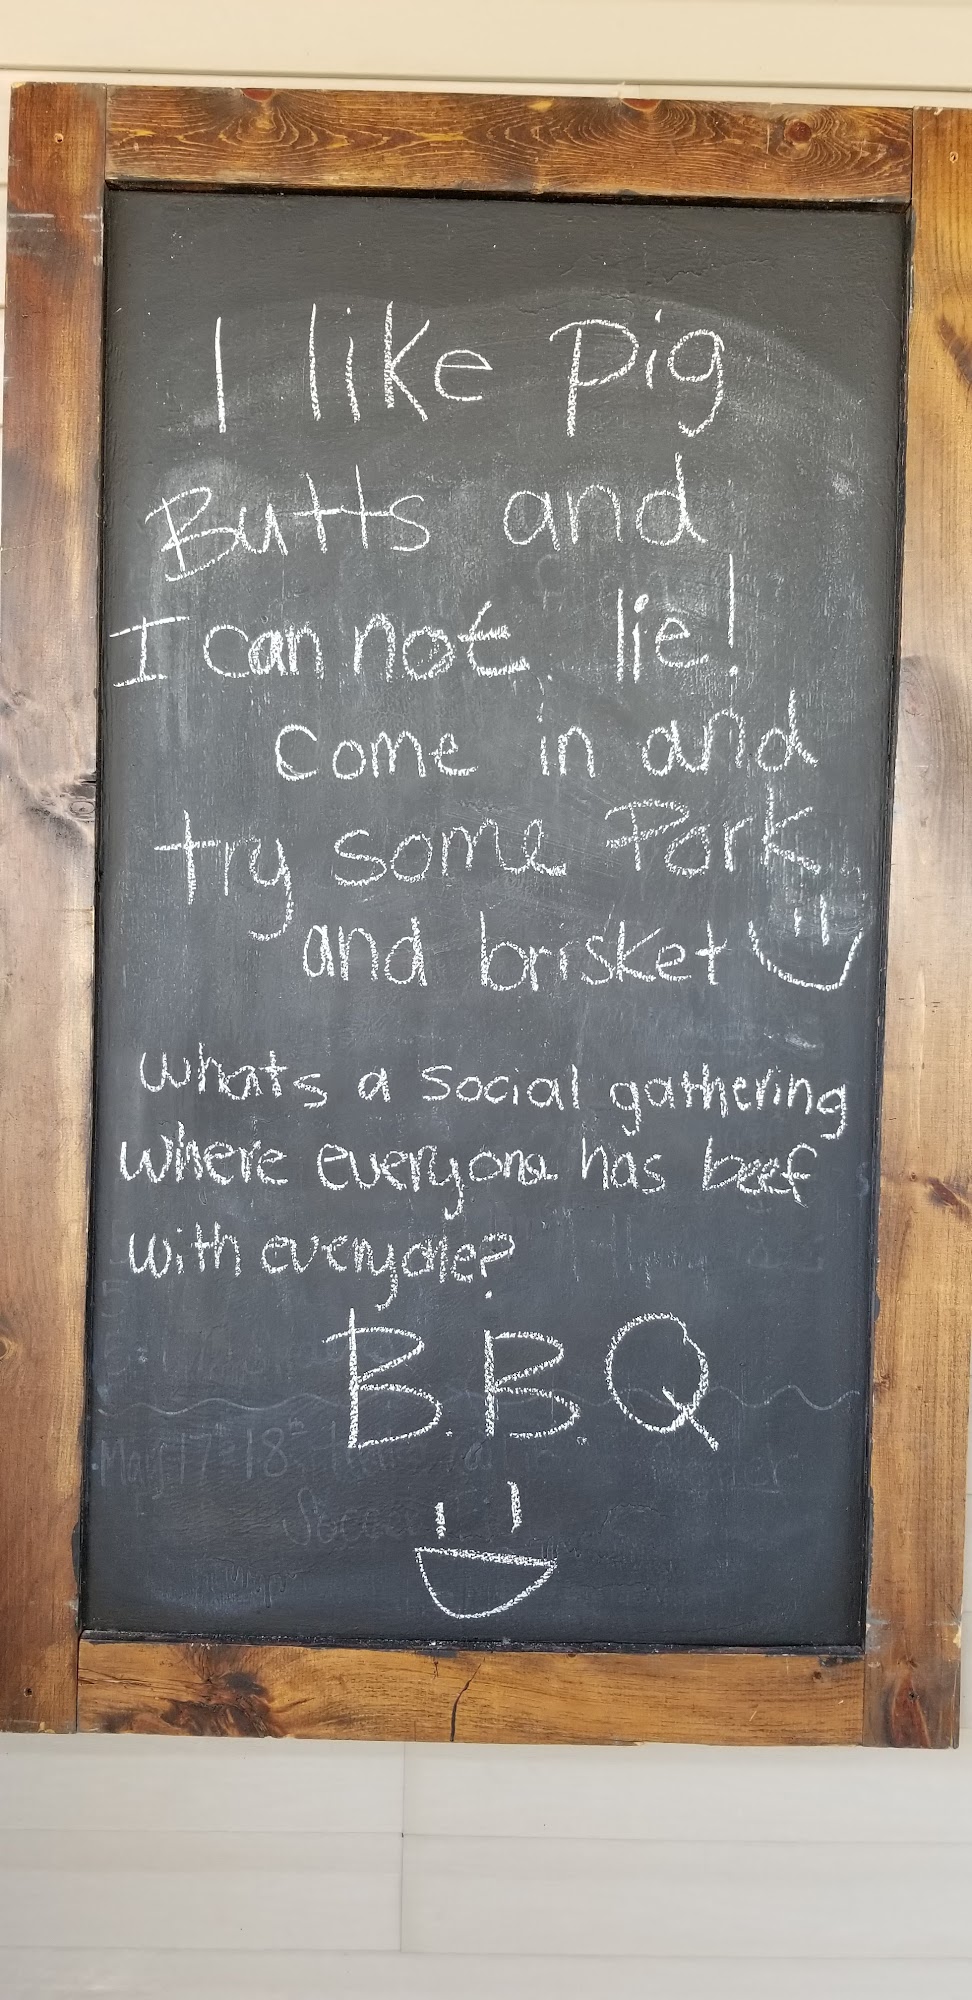 I like pig
Butts and
I can not lie!
come in and
try some Pork
and brisket
whats a social gathering
where everyone has beef
with everyone?
B.B.Q
May 17-18